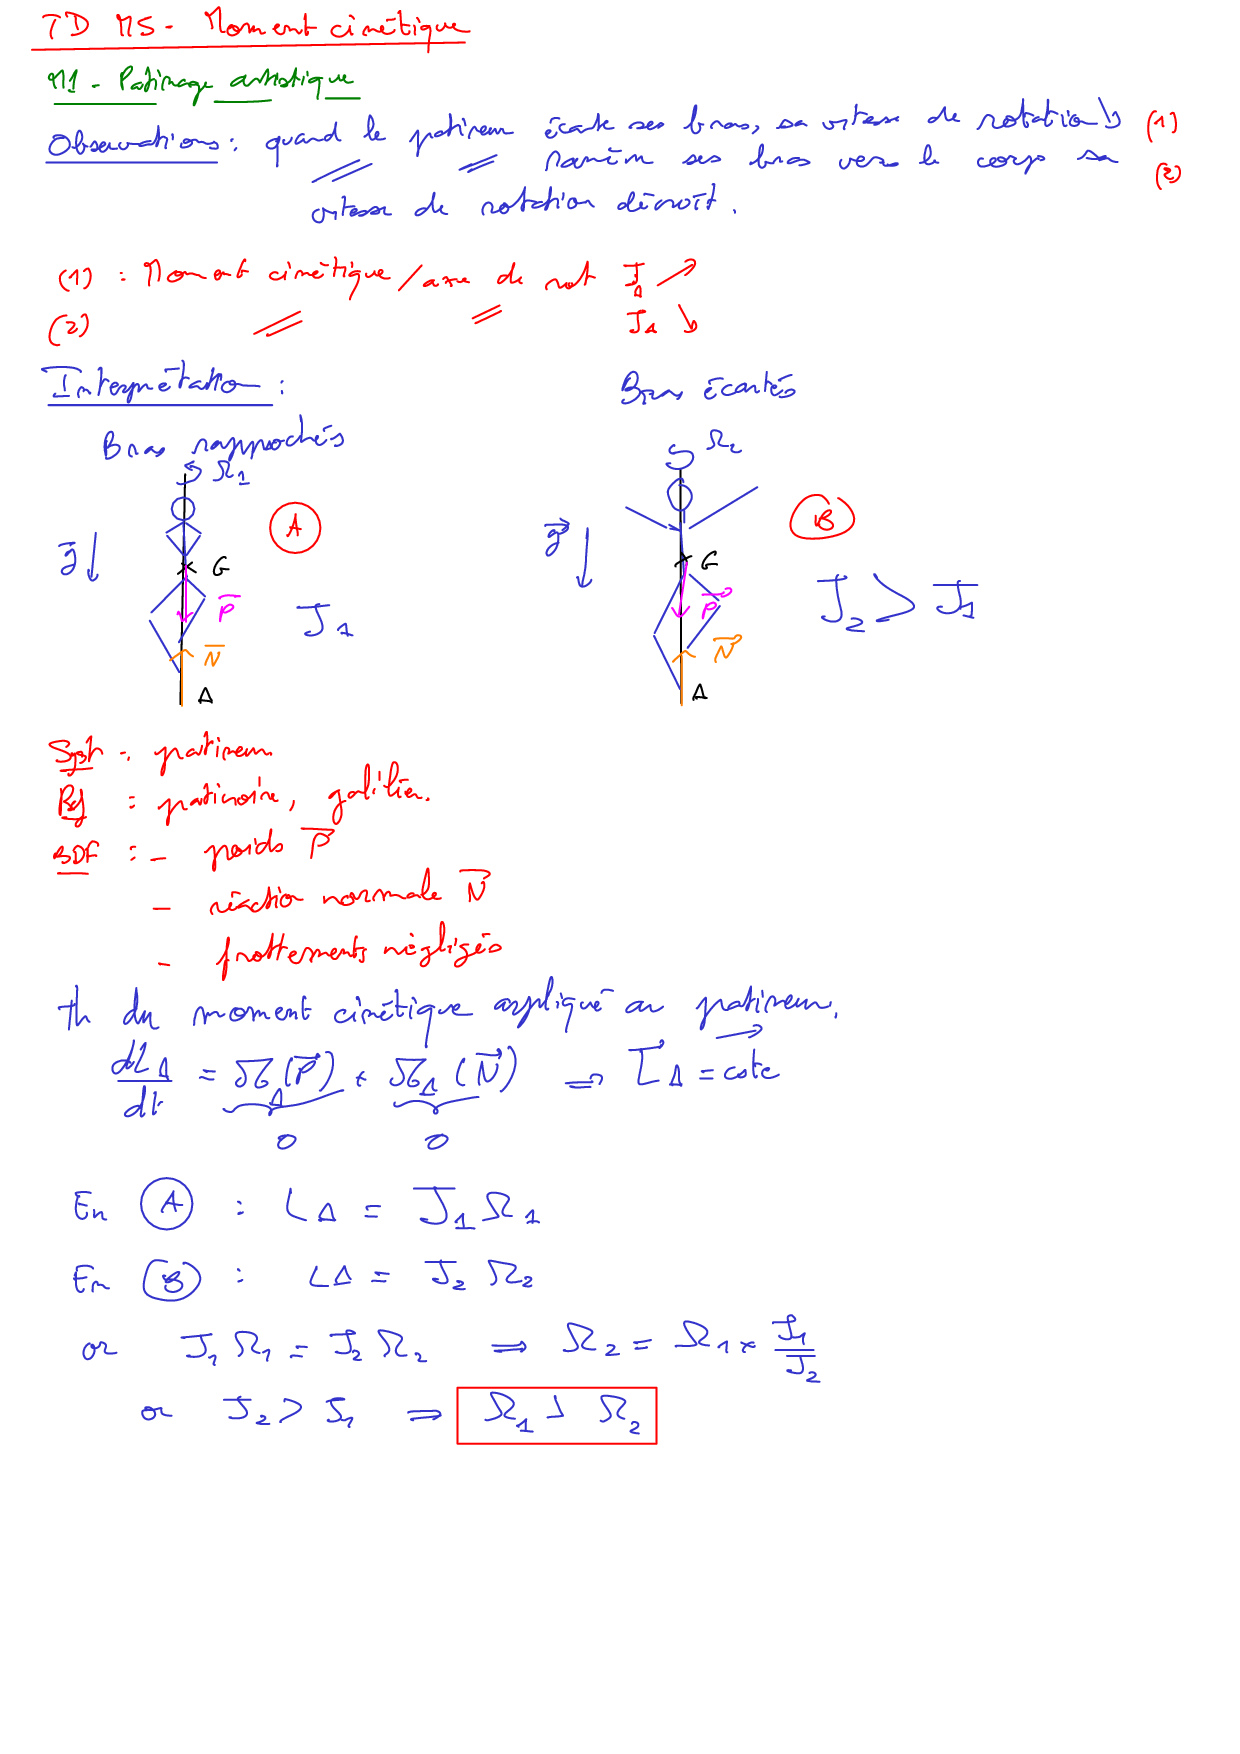 TD M5 - Moment cinétique
M1 - Patinage artistique
Observations : quand le patineur écarte ses bras, sa vitesse de rotation ↘ (1)
// // ramène ses bras vers le corps sa (2)
vitesse de rotation décroît.
(1) : Moment cinétique / axe de rot J_Δ ↗
(2) // // J_Δ ↘
Interprétation :
Bras rapprochés
Bras écartés
Ω1
Ω2
A
B
g
G
P
J1
N
Δ
g
G
P
J2 > J1
N
Δ
Syst : patineur
Ref : patinoire, galiléen.
BDF : - poids P
- réaction normale N
- frottements négligés
th du moment cinétique appliqué au patineur.
dL_Δ/dt = M_Δ(P) + M_Δ(N) ⇒ L_Δ = cste
0 0
En A : L_Δ = J1 Ω1
En B : L_Δ = J2 Ω2
or J1 Ω1 = J2 Ω2 ⇒ Ω2 = Ω1 × J1/J2
or J2 > J1 ⇒ Ω1 > Ω2